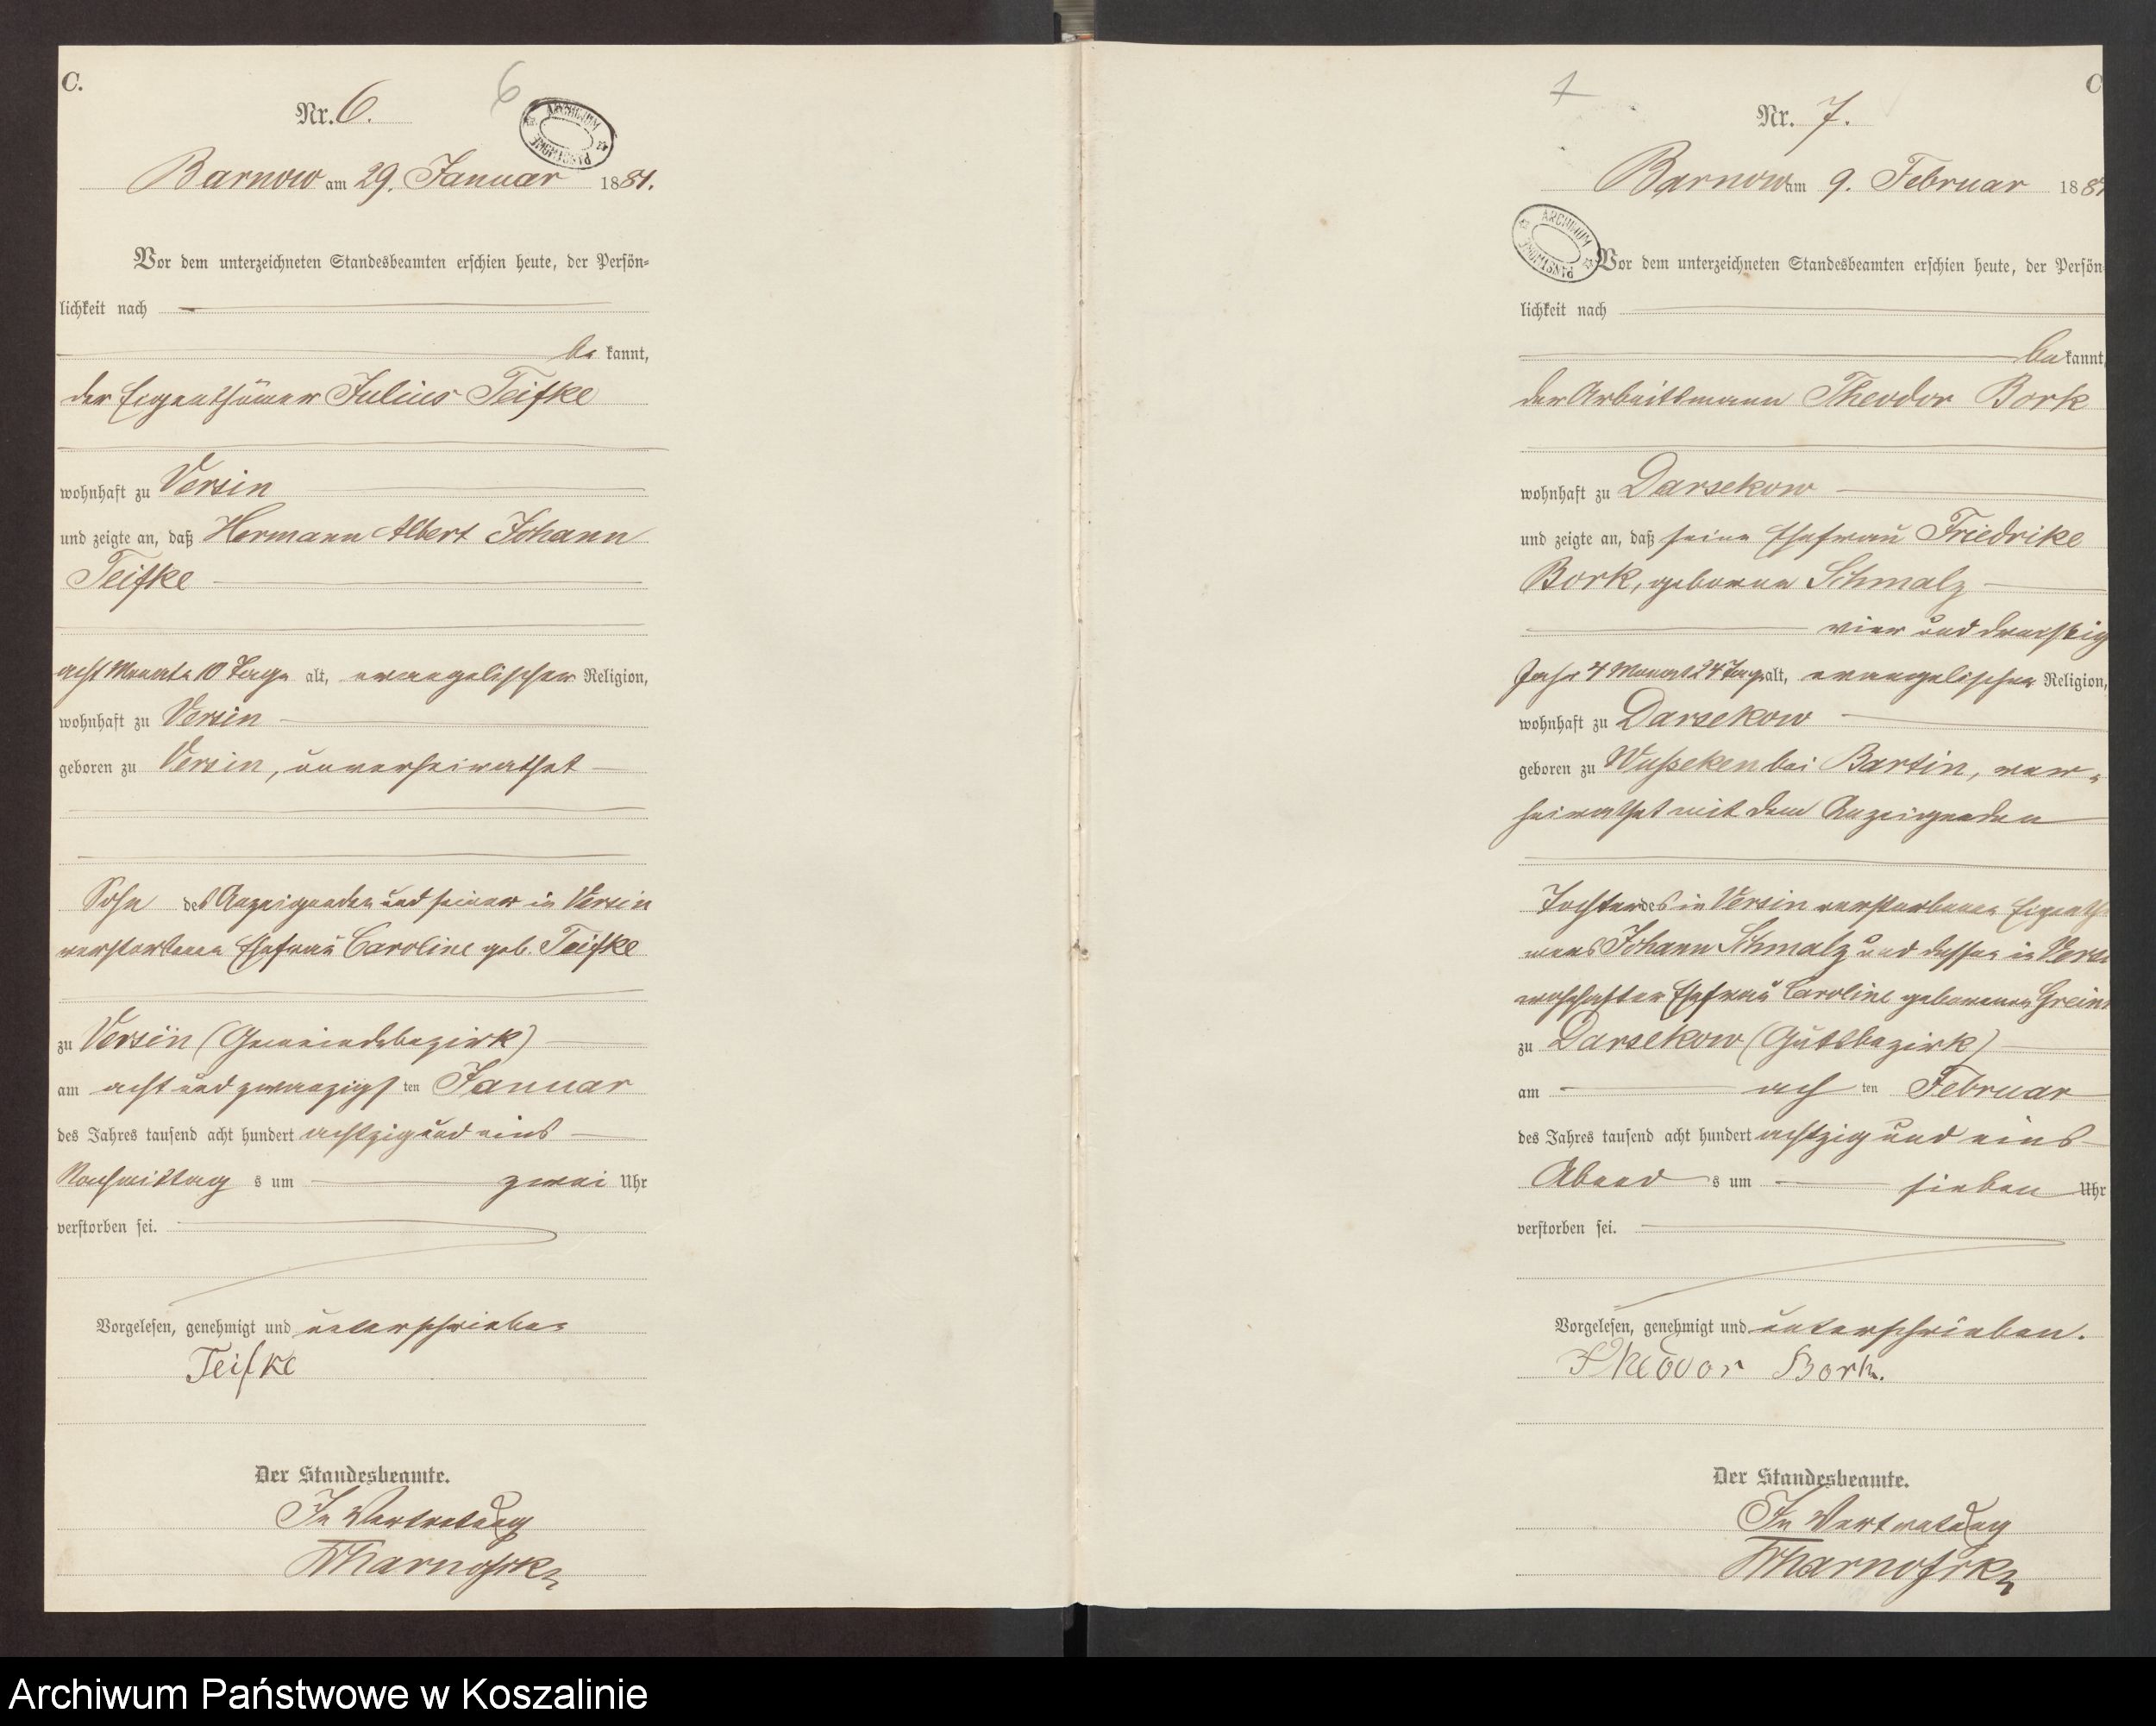 C.
6
Nr. 6.
ARCHIWUM PAŃSTWOWE
Barnow am 29. Januar 1881.
Vor dem unterzeichneten Standesbeamten erschien heute, der Persön-
lichkeit nach
be kannt,
der Eigenthümer Julius Teifke
wohnhaft zu Versin
und zeigte an, daß Hermann Albert Johann
Teifke
acht Monate 10 Tage alt, evangelischer Religion,
wohnhaft zu Versin
geboren zu Versin, unverheirathet
Sohn des Anzeigenden und seiner in Versin
verstorbenen Ehefrau Caroline geb. Teifke
zu Versin (Gemeindebezirk)
am acht und zwanzigs ten Januar
des Jahres tausend acht hundert achtzig und eins
Nachmittag s um zwei Uhr
verstorben sei.
Vorgelesen, genehmigt und unterschrieben
Teifke
Der Standesbeamte.
In Vertretung
C
7
Nr. 7.
Barnow am 9. Februar 1881
ARCHIWUM PAŃSTWOWE
Vor dem unterzeichneten Standesbeamten erschien heute, der Persön
lichkeit nach
be kannt,
der Arbeitsmann Theodor Bork
wohnhaft zu Darsekow
und zeigte an, daß seine Ehefrau Friedrike
Bork, geborene Schmalz
vier und dreißig
Jahr 4 Monat 24 Tage alt, evangelischer Religion,
wohnhaft zu Darsekow
geboren zu Wußeken bei Bartin, ver-
heirathet mit dem Anzeigenden
Tochter des in Versin verstorbenen Eigenthü
mers Johann Schmalz und dessen in Versi
wohnhafter Ehefrau Caroline geborenen
zu Darsekow (Gutsbezirk)
am ach ten Februar
des Jahres tausend acht hundert achtzig und eins
Abend s um sieben Uhr
verstorben sei.
Vorgelesen, genehmigt und unterschrieben.
Theodor Bork.
Der Standesbeamte.
In Vertretung
Archiwum Państwowe w Koszalinie